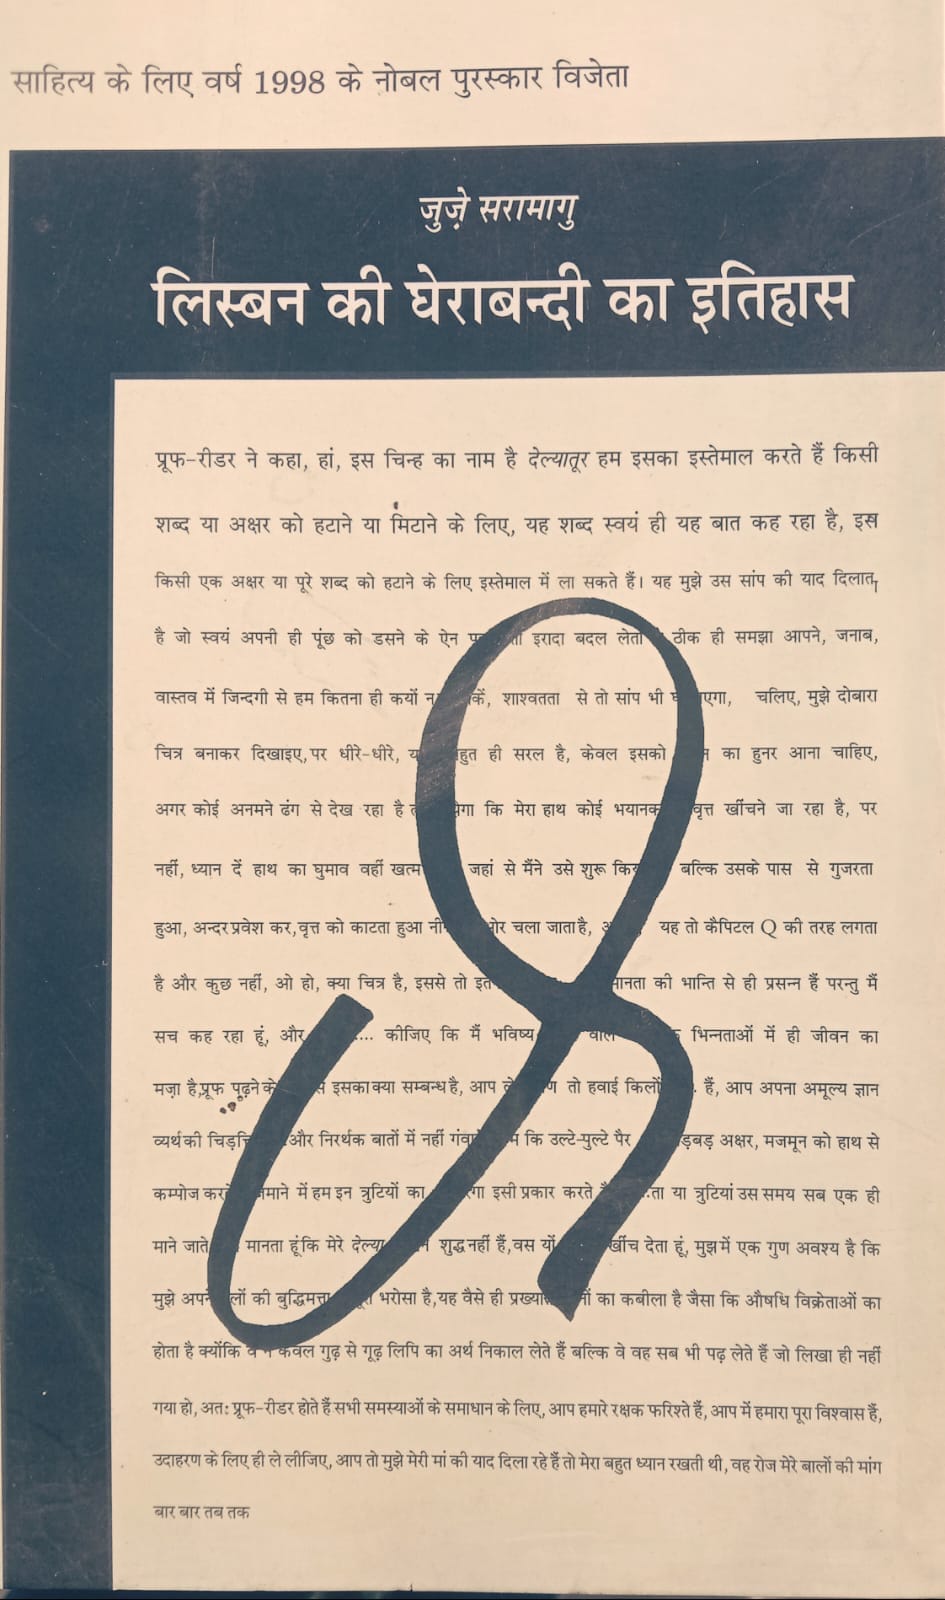 साहित्य के लिए वर्ष 1998 के नोबल पुरस्कार विजेता
जुज़े सरामागु
लिस्बन की घेराबन्दी का इतिहास
प्रूफ-रीडर ने कहा, हां, इस चिन्ह का नाम है देल्यातूर हम इसका इस्तेमाल करते हैं किसी
शब्द या अक्षर को हटाने या मिटाने के लिए, यह शब्द स्वयं ही यह बात कह रहा है, इस
किसी एक अक्षर या पूरे शब्द को हटाने के लिए इस्तेमाल में ला सकते हैं। यह मुझे उस सांप की याद दिलाता
है जो स्वयं अपनी ही पूंछ को डसने के ऐन इरादा बदल लेता ठीक ही समझा आपने, जनाब,
वास्तव में जिन्दगी से हम कितना ही कयों शाश्वतता से तो सांप भी चलिए, मुझे दोबारा
चित्र बनाकर दिखाइए, पर धीरे-धीरे, ही सरल है, केवल इसको का हुनर आना चाहिए,
अगर कोई अनमने ढंग से देख रहा है कि मेरा हाथ कोई भयानक वृत्त खींचने जा रहा है, पर
नहीं, ध्यान दें हाथ का घुमाव वहीं खत्म जहां से मैंने उसे शुरू बल्कि उसके पास से गुजरता
हुआ, अन्दर प्रवेश कर, वृत्त को काटता हुआ चला जाता है, यह तो कैपिटल Q की तरह लगता
है और कुछ नहीं, ओ हो, क्या चित्र है, इससे तो की भान्ति से ही प्रसन्न हैं परन्तु मैं
सच कह रहा हूं, और .... कीजिए कि मैं भविष्य भिन्नताओं में ही जीवन का
मज़ा है, प्रूफ पढ़ने के इसका क्या सम्बन्ध है, आप तो हवाई किलों हैं, आप अपना अमूल्य ज्ञान
व्यर्थ की और निरर्थक बातों में नहीं कि उल्टे-पुल्टे पैर अक्षर, मजमून को हाथ से
कम्पोज में हम इन त्रुटियों का इसी प्रकार करते या त्रुटियां उस समय सब एक ही
माने जाते मानता हूं कि मेरे शुद्ध नहीं हैं, वस खींच देता हूं, मुझ में एक गुण अवश्य है कि
मुझे की बुद्धिमत्ता भरोसा है, यह वैसे ही का कबीला है जैसा कि औषधि विक्रेताओं का
होता है क्योंकि केवल गुढ़ से गूढ़ लिपि का अर्थ निकाल लेते हैं बल्कि वे वह सब भी पढ़ लेते हैं जो लिखा ही नहीं
गया हो, अतः प्रूफ-रीडर होते हैं सभी समस्याओं के समाधान के लिए, आप हमारे रक्षक फरिश्ते हैं, आप में हमारा पूरा विश्वास हैं,
उदाहरण के लिए ही ले लीजिए, आप तो मुझे मेरी मां की याद दिला रहे हैं तो मेरा बहुत ध्यान रखती थी, वह रोज मेरे बालों की मांग
बार बार तब तक